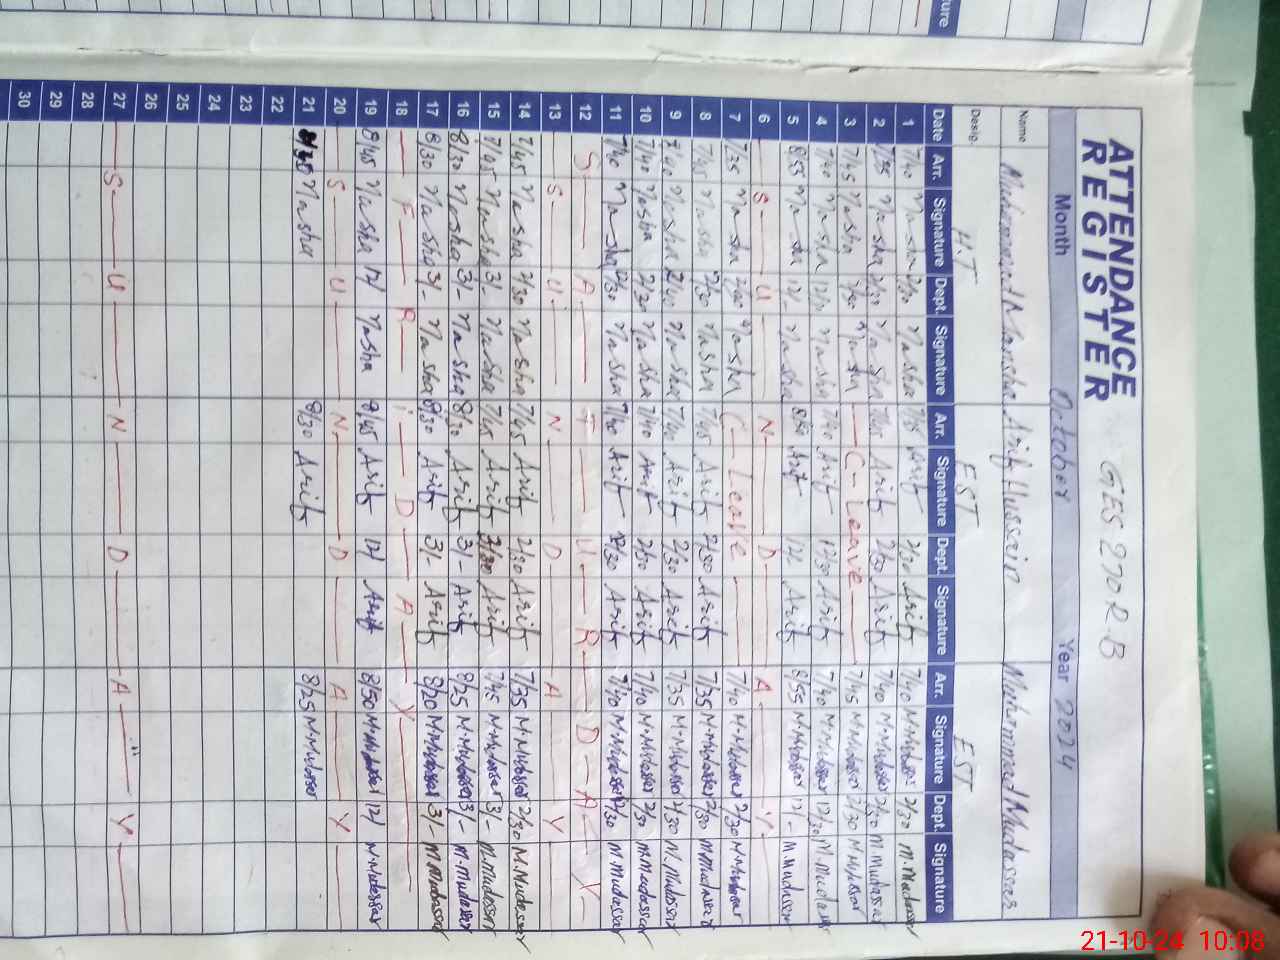 ture
ATTENDANCE
REGISTER
GES 270 R.B
Month October Year 2024
Name Muhammad Mansha Arif Hussain Muhammad Mudasser
Desig. H.T EST EST
Date Arr. Signature Dept. Signature Arr. Signature Dept. Signature Arr. Signature Dept. Signature
1 7/40 Mansha 2/30 Mansha Arif 2/30 Arif 7/40 M.Mudasser 2/30 M.Mudasser
2 Mansha 2/30 Mansha Arif 2/30 Arif 7/40 M.Mudasser 2/30 M.Mudasser
3 7/45 Mansha Mansha C - Leave 7/45 M.Mudasser 2/30 M.Mudasser
4 7/40 Mansha 12/30 Mansha 7/40 Arif 12/30 Arif 7/40 M.Mudasser 12/30 M.Mudasser
5 8/55 Mansha 12/- Mansha Arif 12/ Arif 8/55 M.Mudasser 12/- M.Mudasser
6 S U N D A Y
7 7/35 Mansha Mansha C - Leave 7/40 M.Mudasser 2/30 M.Mudasser
8 7/45 Mansha 2/30 Mansha 7/45 Arif 2/30 Arif 7/35 M.Mudasser 2/30 M.Mudasser
9 7/40 Mansha Mansha 7/40 Arif 2/30 Arif 7/35 M.Mudasser 2/30 M.Mudasser
10 7/40 Mansha 2/30 Mansha 7/40 Arif 2/30 Arif 7/40 M.Mudasser 2/30 M.Mudasser
11 7/40 Mansha 2/30 Mansha 7/40 Arif 2/30 Arif 7/40 M.Mudasser 2/30 M.Mudasser
12 S A T U R D A Y
13 S U N D A Y
14 7/45 Mansha 2/30 Mansha 7/45 Arif 2/30 Arif 7/35 M.Mudasser 2/30 M.Mudasser
15 7/45 Mansha 3/- Mansha 7/45 Arif Arif 7/45 M.Mudasser 3/- M.Mudasser
16 8/30 Mansha 3/- Mansha 8/30 Arif 3/- Arif 8/25 M.Mudasser 3/- M.Mudasser
17 8/30 Mansha 3/- Mansha 8/30 Arif 3/- Arif 8/20 M.Mudasser 3/- M.Mudasser
18 F R i D A Y
19 8/45 Mansha 12/ Mansha 8/45 Arif 12/ Arif 8/50 M.Mudasser 12/ M.Mudasser
20 S U N D A Y
21 8/30 Mansha 8/30 Arif 8/25 M.Mudasser
22
23
24
25
26
27 S U N D A Y
28
29
30
21-10-24 10:08